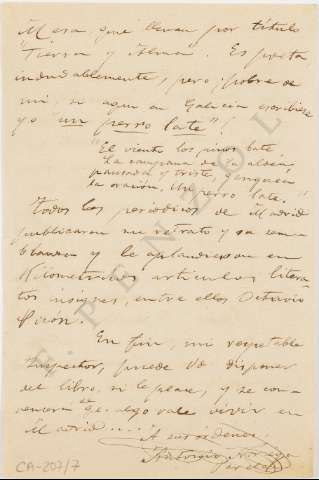 Mesa, que llevan por título
"Tierra y Alma". Es poeta,
indudablemente, pero ¡pobre de
mí, si aquí en Galicia escribiese
yo "un perro late"!
"El viento los pinos bate
La campana de la aldea
pausada y triste,
la oración. Un perro late."
Todos los periódicos de Madrid
publicaron su retrato y su sem-
blanza y le aplaudieron en
kilométricos artículos litera-
tos insignes, entre ellos Octavio
Picón.
En fin, mi respetable
Inspector, puede Vd disponer
del libro, si le place, y se con-
vencerá de q.e algo vale vivir en
Madrid....
A sus órdenes,
Antonio Noriega
Varela
PENZOL
CA-207/7